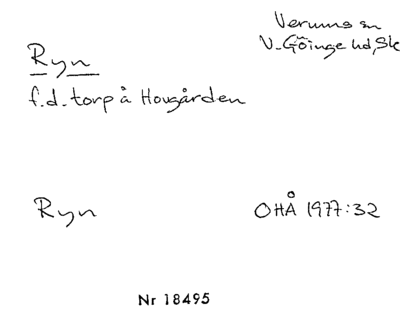 Verums sn
V-Göinge hd, Sk
Ryn
f.d. torp å Hovgården
Ryn
OHÅ 1977:32
Nr 18495